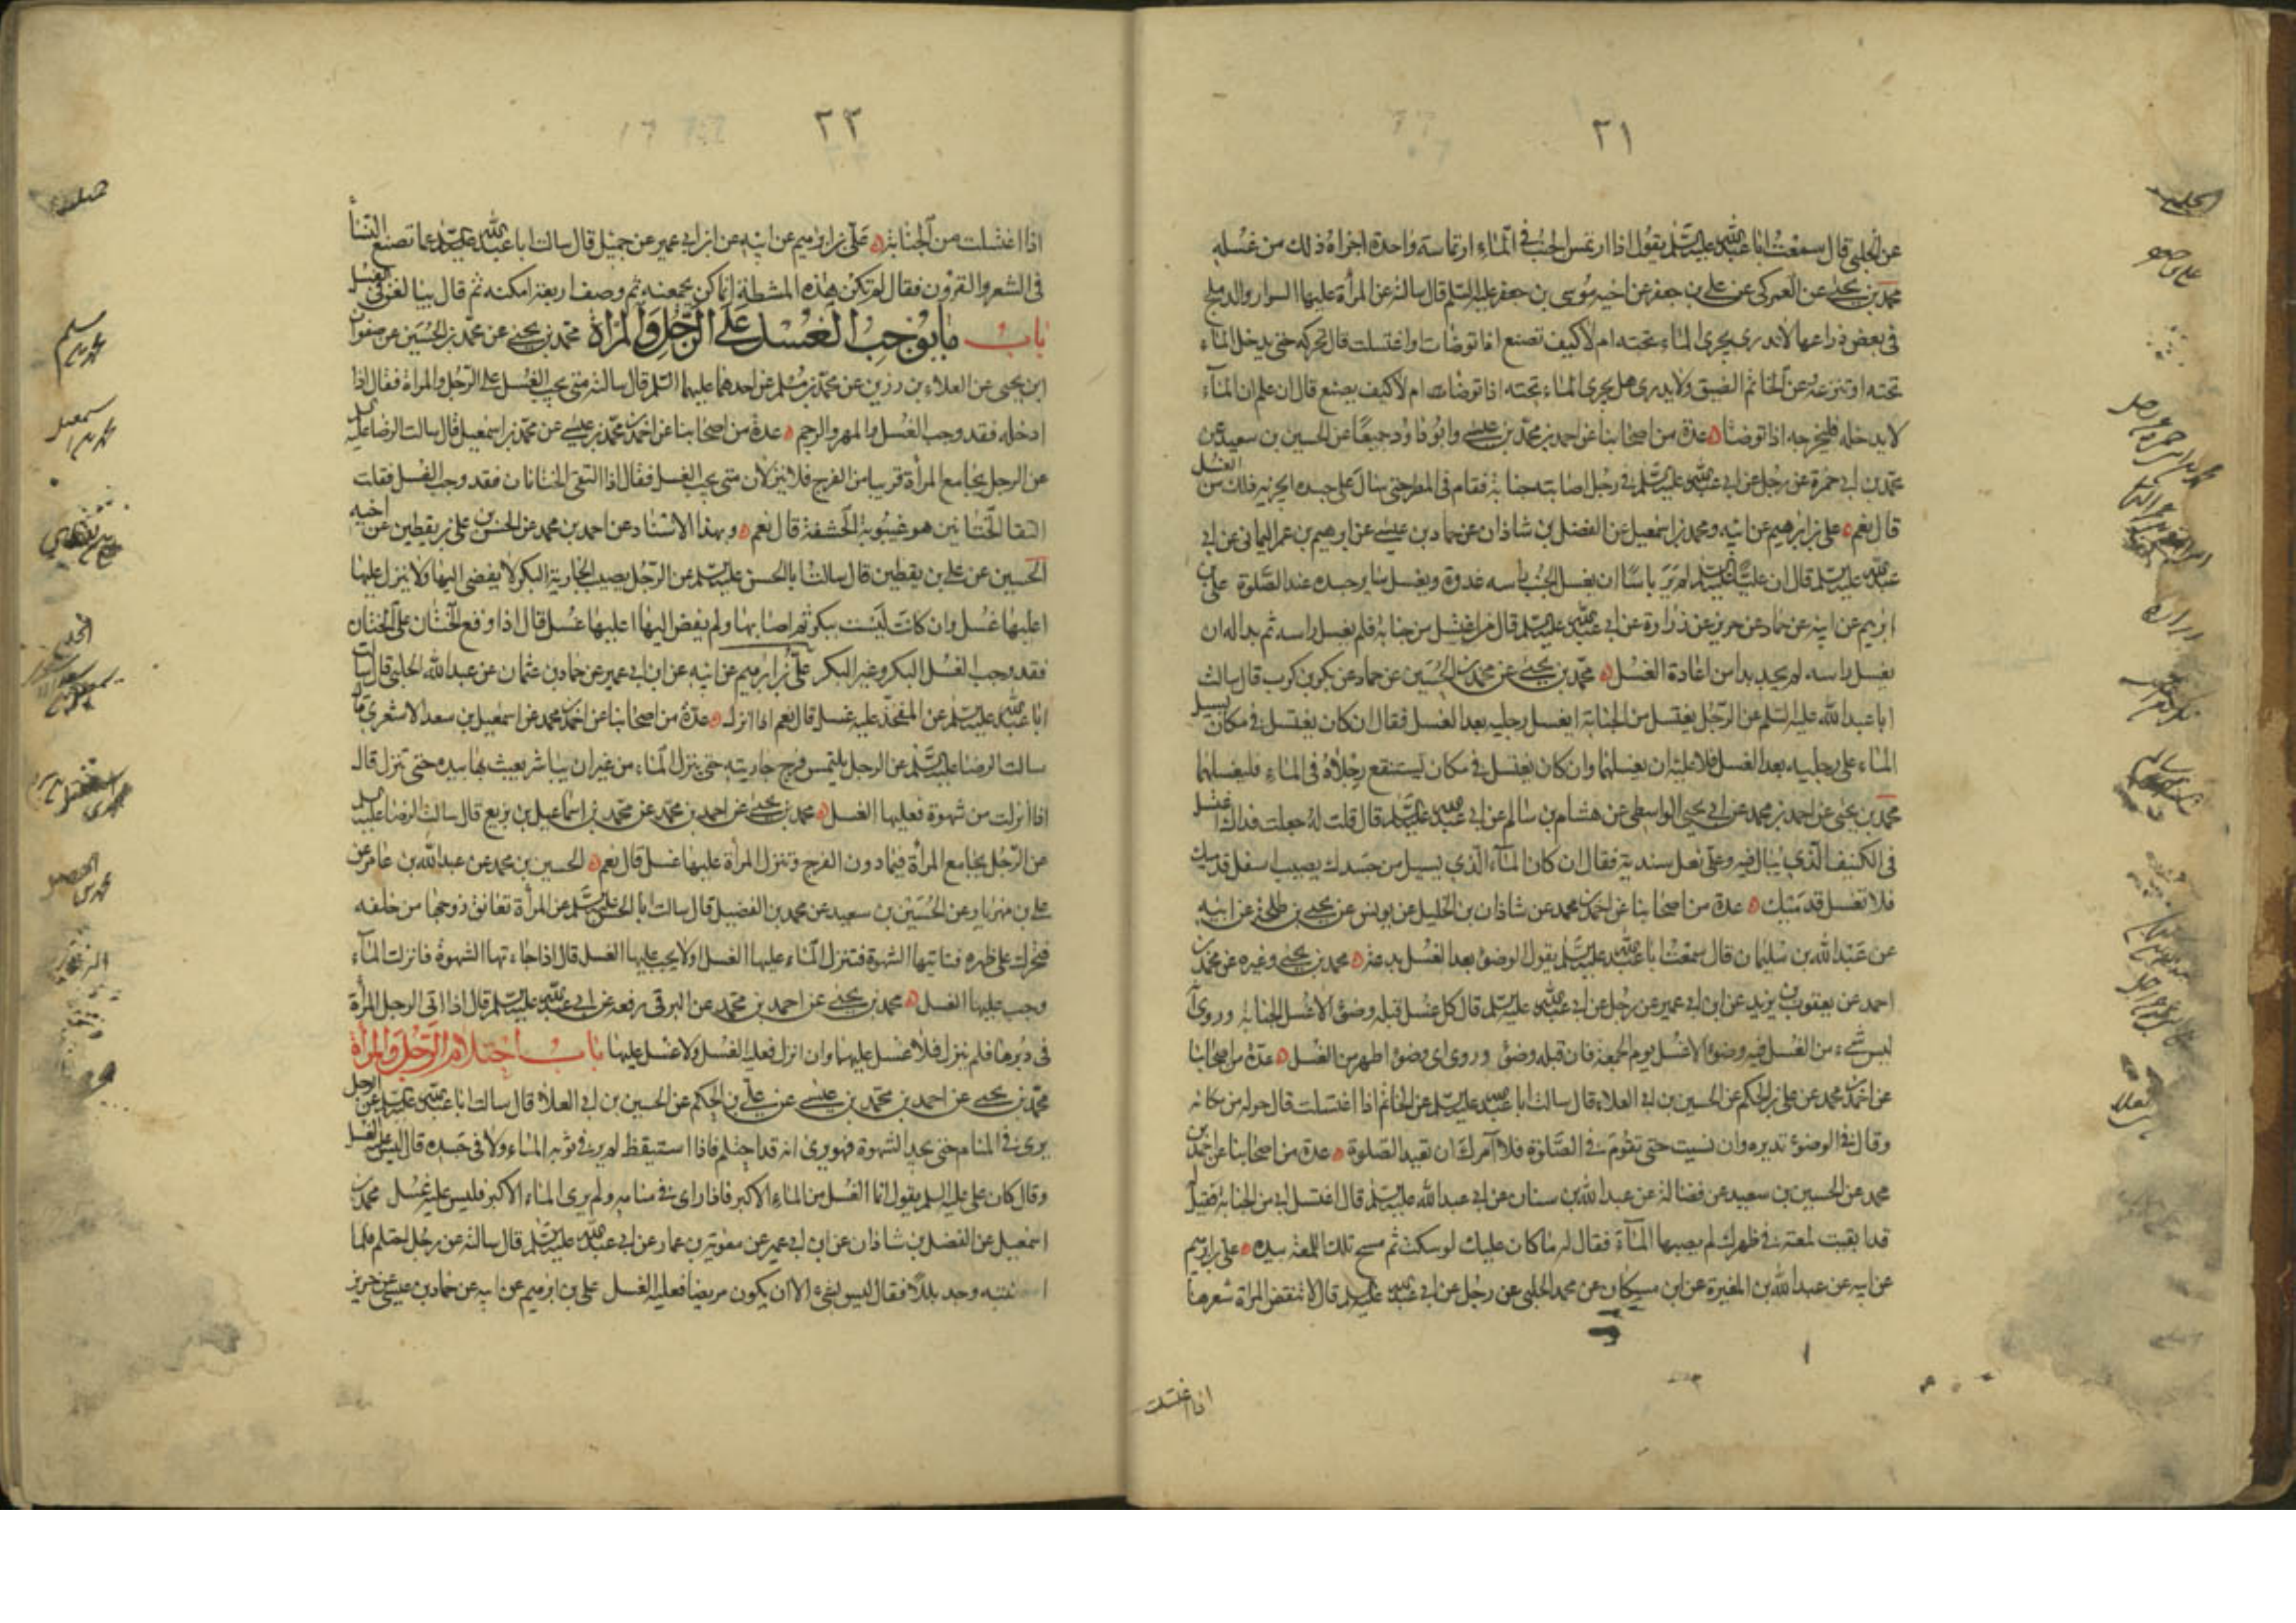 ٢١
عن الحلبي قال سمعت ابا عبد الله عليه السلم يقول اذا ارتمس الجنب في الماء ارتماسة واحدة اجزاه ذلك من غسله
محمد بن يحيى عن العمركي عن علي بن جعفر عن اخيه موسى بن جعفر عليه السلم قال سالته عن المرأة عليها السوار والدملج
في بعض ذراعها لا تدري يجري الماء تحته ام لا كيف تصنع اذا توضات واغتسلت قال تحركه حتى يدخل الماء
تحته او تنزعه وعن الخاتم الضيق ولا يدري هل يجري الماء تحته اذا توضات ام لا كيف يصنع قال ان علم ان المآء
لا يدخله فليخرجه اذا توضأ عدة من اصحابنا عن احمد بن محمد بن عيسى وابو داود جميعًا عن الحسين بن سعيد عن
محمد بن ابي حمزة عن رجل عن ابي عبد الله عليه السلم في رجل اصابته جنابة فقام في المطر حتى سال على جسده ايجزيه ذلك من الغسل
قال نعم علي بن ابرهيم عن ابيه ومحمد بن اسمعيل عن الفضل بن شاذان عن حماد بن عيسى عن ابرهيم بن عمر اليماني عن ابي
عبد الله عليه السلم قال ان عليًا عليه السلم لم ير باسًا ان يغسل الجنب راسه غدوة ويغسل ساير جسده عند الصلوة علي بن
ابرهيم عن ابيه عن حماد عن حريز عن زرارة عن ابي عبد الله عليه السلم قال من اغتسل من جنابة فلم يغسل راسه ثم بدا له ان
يغسل راسه لم يجد بدا من اعادة الغسل محمد بن يحيى عن محمد بن الحسين عن حماد عن بكر بن كرب قال سالت
ابا عبد الله عليه السلم عن الرجل يغتسل من الجنابة ايغسل رجليه بعد الغسل فقال ان كان يغتسل في مكان يسيل
الماء على رجليه بعد الغسل فلا عليه ان يغسلهما وان كان يغتسل في مكان يستنقع رجلاه في الماء فليغسلهما
محمد بن يحيى عن احمد بن محمد عن ابي يحيى الواسطي عن هشام بن سالم عن ابي عبد الله عليه السلم قال قلت له جعلت فداك اغتسل
في الكنيف الذي يبال فيه وعلي نعل سندية فقال ان كان المآء الذي يسيل من جسدك يصيب اسفل قدميك
فلا تغسل قدميك عدة من اصحابنا عن احمد بن محمد عن شاذان بن الخليل عن يونس عن يحيى بن طلحة عن ابيه
عن عبد الله بن سليمان قال سمعت ابا عبد الله عليه السلم يقول الوضوء بعد الغسل بدعة محمد بن يحيى وغيره عن محمد بن
احمد عن يعقوب بن يزيد عن ابن ابي عمير عن رجل عن ابي عبد الله عليه السلم قال كل غسل قبله وضوء الا غسل الجنابة وروي انه
ليس شيء من الغسل فيه وضوء الا غسل يوم الجمعة فان قبله وضوء وروي اي وضوء اطهر من الغسل عدة من اصحابنا
عن احمد بن محمد عن علي بن الحكم عن الحسين بن ابي العلاء قال سالت ابا عبد الله عليه السلم عن الخاتم اذا اغتسلت قال حوله من مكانه
وقال في الوضوء تديره وان نسيت حتى تقوم في الصلوة فلا آمرك ان تعيد الصلوة عدة من اصحابنا عن احمد بن
محمد عن الحسين بن سعيد عن فضالة عن عبد الله بن سنان عن ابي عبد الله عليه السلم قال اغتسل ابي من الجنابة فقيل له
قد ابقيت لمعة في ظهرك لم يصبها المآء فقال له ما كان عليك لو سكت ثم مسح تلك اللمعة بيده علي بن ابرهيم
عن ابيه عن عبد الله بن المغيرة عن ابن مسكان عن محمد الحلبي عن رجل عن ابي عبد الله عليه السلم قال لا تنقض المراة شعرها
اذا اغتسلت
٢٢
اذا اغتسلت من الجنابة علي بن ابرهيم عن ابيه عن ابن ابي عمير عن جميل قال سالت ابا عبد الله عليه السلم عما تصنع النساء
في الشعر والقرون فقال لم تكن هذه المشطة انما كن يجمعنه ثم وصف اربعة امكنة ثم قال يبالغن في الغسل
باب ما يوجب الغسل على الرجل والمراة محمد بن يحيى عن محمد بن الحسين عن صفوان
ابن يحيى عن العلاء بن رزين عن محمد بن مسلم عن احدهما عليهما السلم قال سالته متى يجب الغسل على الرجل والمراة فقال اذا
ادخله فقد وجب الغسل والمهر والرجم عدة من اصحابنا عن احمد بن محمد بن عيسى عن محمد بن اسمعيل قال سالت الرضا عليه السلم
عن الرجل يجامع المرأة قريبا من الفرج فلا ينزلان متى يجب الغسل فقال اذا التقى الختانان فقد وجب الغسل فقلت
التقا الختانين هو غيبوبة الحشفة قال نعم وبهذا الاسناد عن احمد بن محمد عن الحسن بن علي بن يقطين عن اخيه
الحسين عن علي بن يقطين قال سالت ابا الحسن عليه السلم عن الرجل يصيب الجارية البكر لا يفضي اليها ولا ينزل عليها
اعليها غسل وان كانت ليست ببكر ثم اصابها ولم يفض اليها اعليها غسل قال اذا وقع الختان على الختان
فقد وجب الغسل البكر وغير البكر علي بن ابرهيم عن ابيه عن ابن ابي عمير عن حماد بن عثمان عن عبد الله الحلبي قال سالت
ابا عبد الله عليه السلم عن المفخذ عليه غسل قال نعم اذا انزل عدة من اصحابنا عن احمد بن محمد عن اسمعيل بن سعد الاشعري قال
سالت الرضا عليه السلم عن الرجل يلتمس فرج جاريته حتى ينزل المآء من غير ان يباشر يعبث بها بيده حتى تنزل قال
اذا انزلت من شهوة فعليها الغسل محمد بن يحيى عن احمد بن محمد عن محمد بن اسماعيل بن بزيع قال سالت الرضا عليه السلم
عن الرجل يجامع المرأة فيما دون الفرج وتنزل المرأة عليها غسل قال نعم الحسين بن محمد عن عبد الله بن عامر عن
علي بن مهزيار عن الحسين بن سعيد عن محمد بن الفضيل قال سالت ابا الحسن عليه السلم عن المرأة تعانق زوجها من خلفه
فتحرك على ظهره فتاتيها الشهوة فتنزل المآء عليها الغسل او لا يجب عليها الغسل قال اذا جاءتها الشهوة فانزلت المآء
وجب عليها الغسل محمد بن يحيى عن احمد بن محمد عن البرقي رفعه عن ابي عبد الله عليه السلم قال اذا اتى الرجل المرأة
في دبرها فلم ينزل فلا غسل عليهما وان انزل فعليه الغسل ولا غسل عليها باب احتلام الرجل والمرأة
محمد بن يحيى عن احمد بن محمد بن عيسى عن علي بن الحكم عن الحسين بن ابي العلاء قال سالت ابا عبد الله عليه السلم عن الرجل
يرى في المنام حتى يجد الشهوة فهو يرى انه قد احتلم فاذا استيقظ لم ير في ثوبه الماء ولا في جسده قال ليس عليه الغسل
وقال كان علي عليه السلم يقول انما الغسل من الماء الاكبر فاذا راى في منامه ولم ير الماء الاكبر فليس عليه غسل محمد بن
اسمعيل عن الفضل بن شاذان عن ابن ابي عمير عن معوية بن عمار عن ابي عبد الله عليه السلم قال سالته عن رجل احتلم فلما
انتبه وجد بللا فقال ليس بشيء الا ان يكون مريضا فعليه الغسل علي بن ابرهيم عن ابيه عن حماد بن عيسى عن حريز